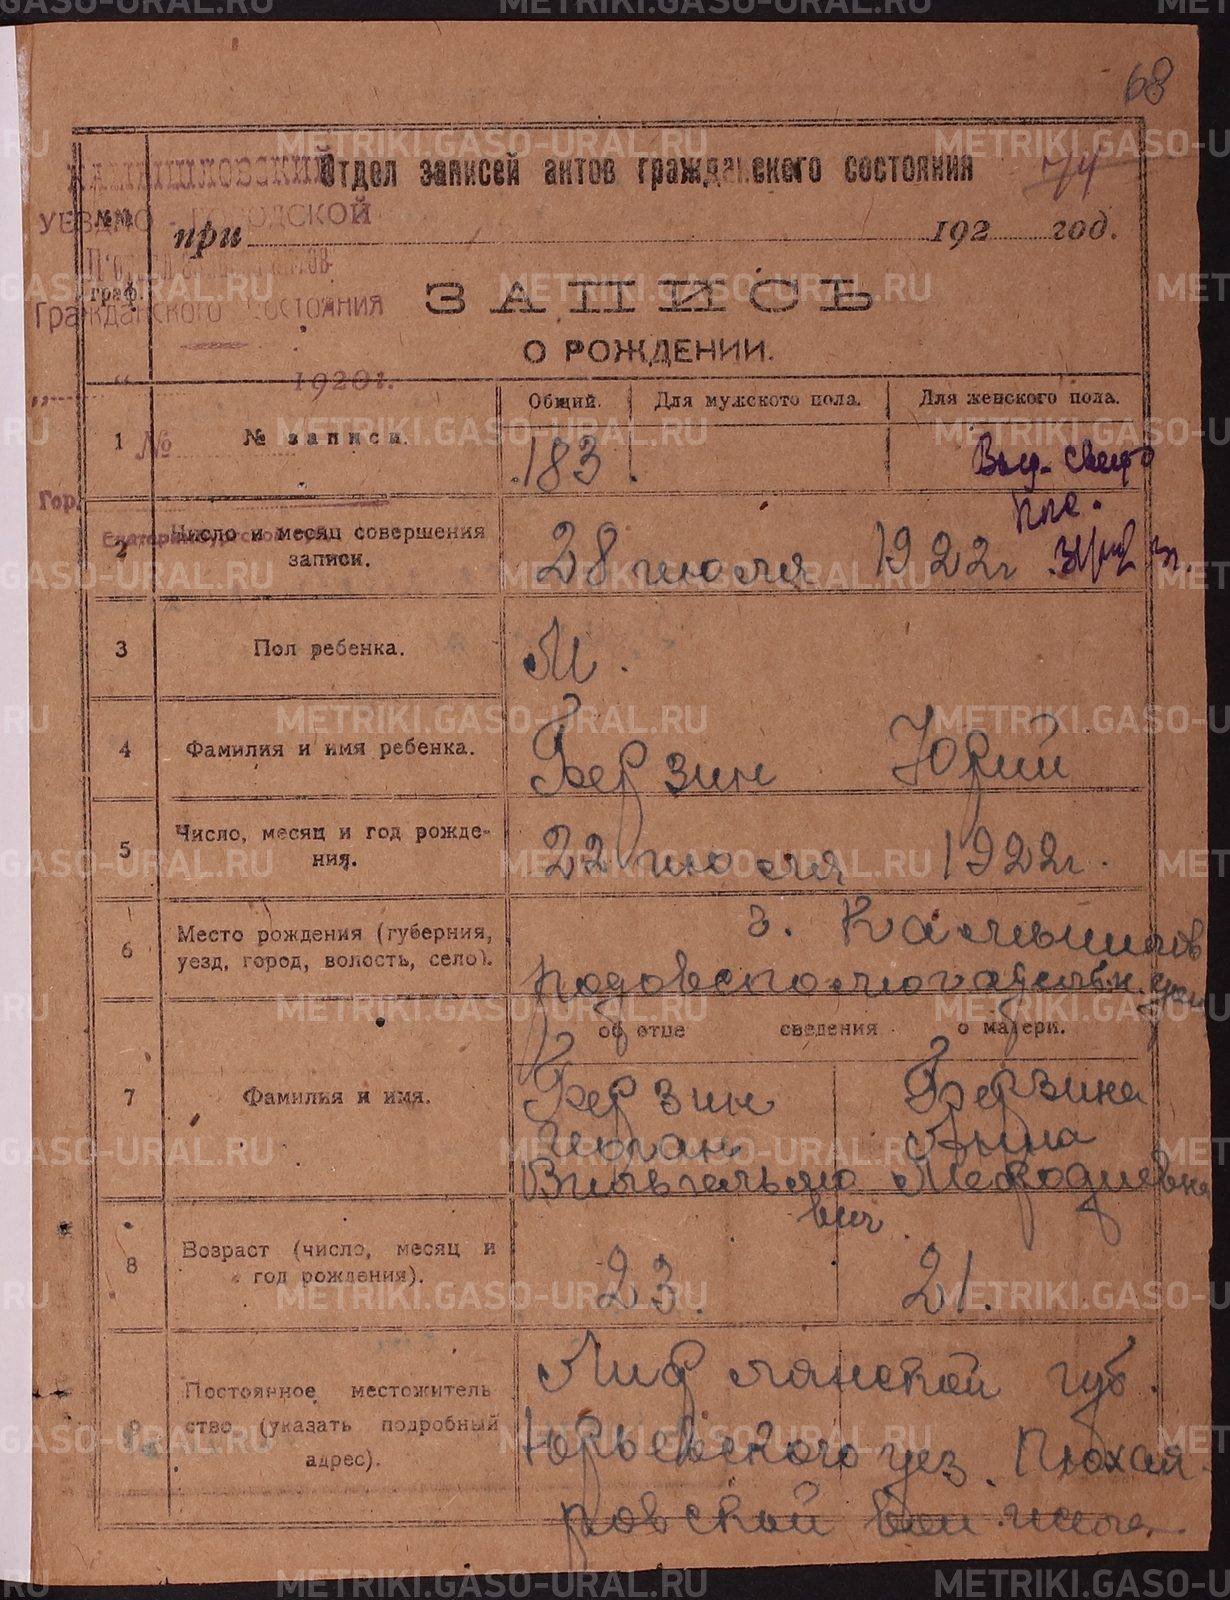 68
Отдел записей актов гражданского состояния
КАМЫШЛОВСКИЙ
УЕЗДНО-ГОРОДСКОЙ
П/отдел Записи актов
Гражданского Состояния
„ “ 1920г.
№
Гор.
Екатеринбургской
№№ граф.
при 192 год.
ЗАПИСЬ
О РОЖДЕНИИ.
Общий. Для мужского пола. Для женского пола.
1 № записи. 183
Выд.
2 Число и месяц совершения
записи.
28 июля 1922г
3 Пол ребенка. М.
4 Фамилия и имя ребенка. Берзин Юрий
5 Число, месяц и год рожде-
ния.
22 июля 1922г.
6 Место рождения (губерния,
уезд, город, волость, село).
г. Камышлов
об отце сведения о матери.
7 Фамилья и имя.
Берзин Берзина
Иоган Анна
Мефодиевна
вич
8 Возраст (число, месяц и
год рождения).
23. 21.
9 Постоянное местожитель
ство (указать подробный
адрес).
Лифлянской губ.
Юрьевского уез.
METRIKI.GASO-URAL.RU